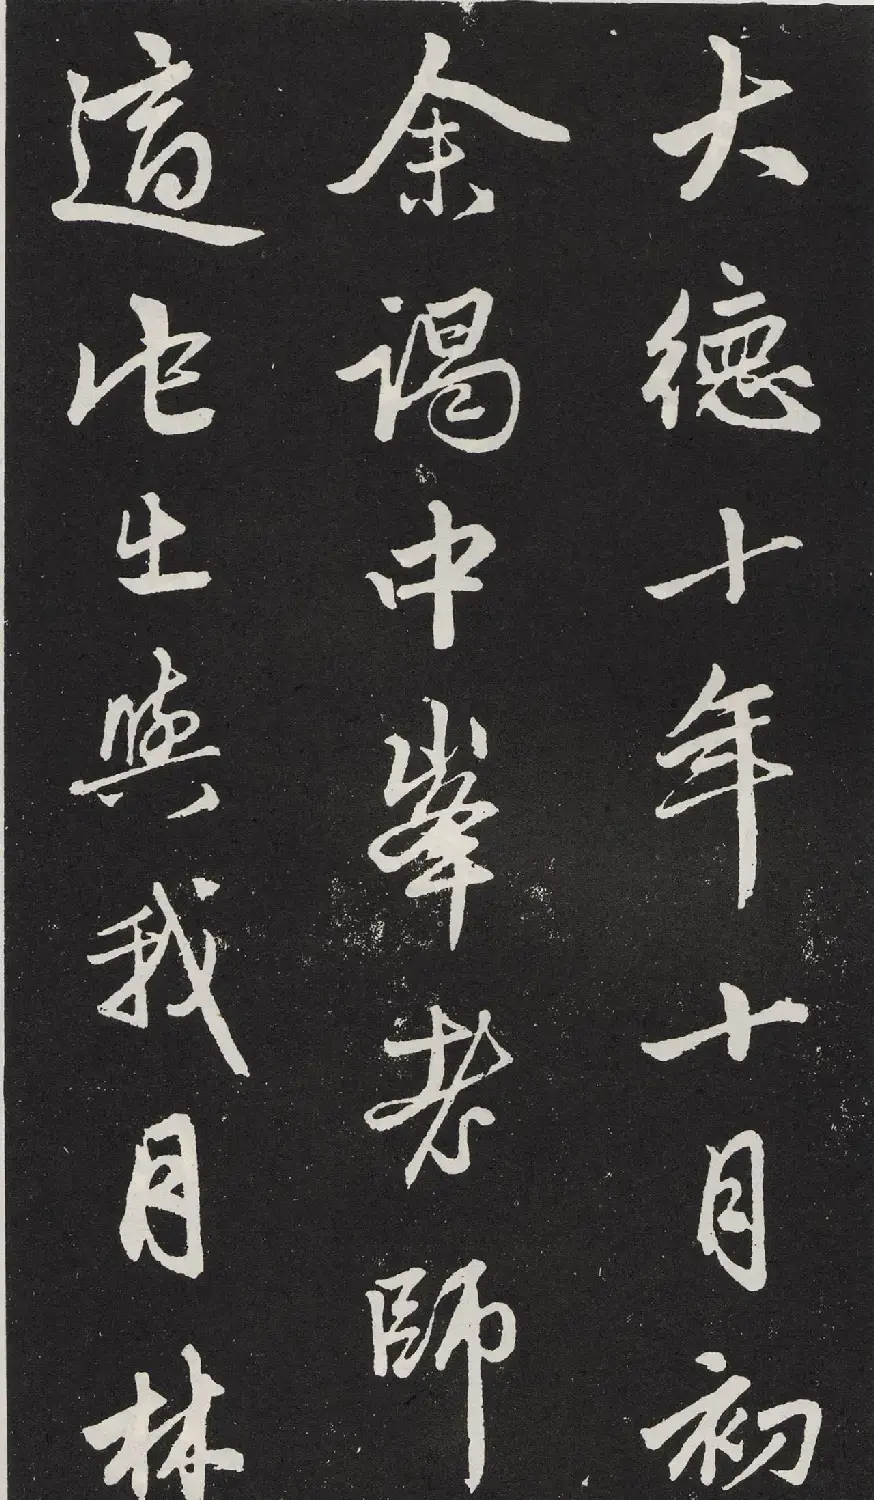 大德十年十月初
余謁中峯老師
適它出與我月林